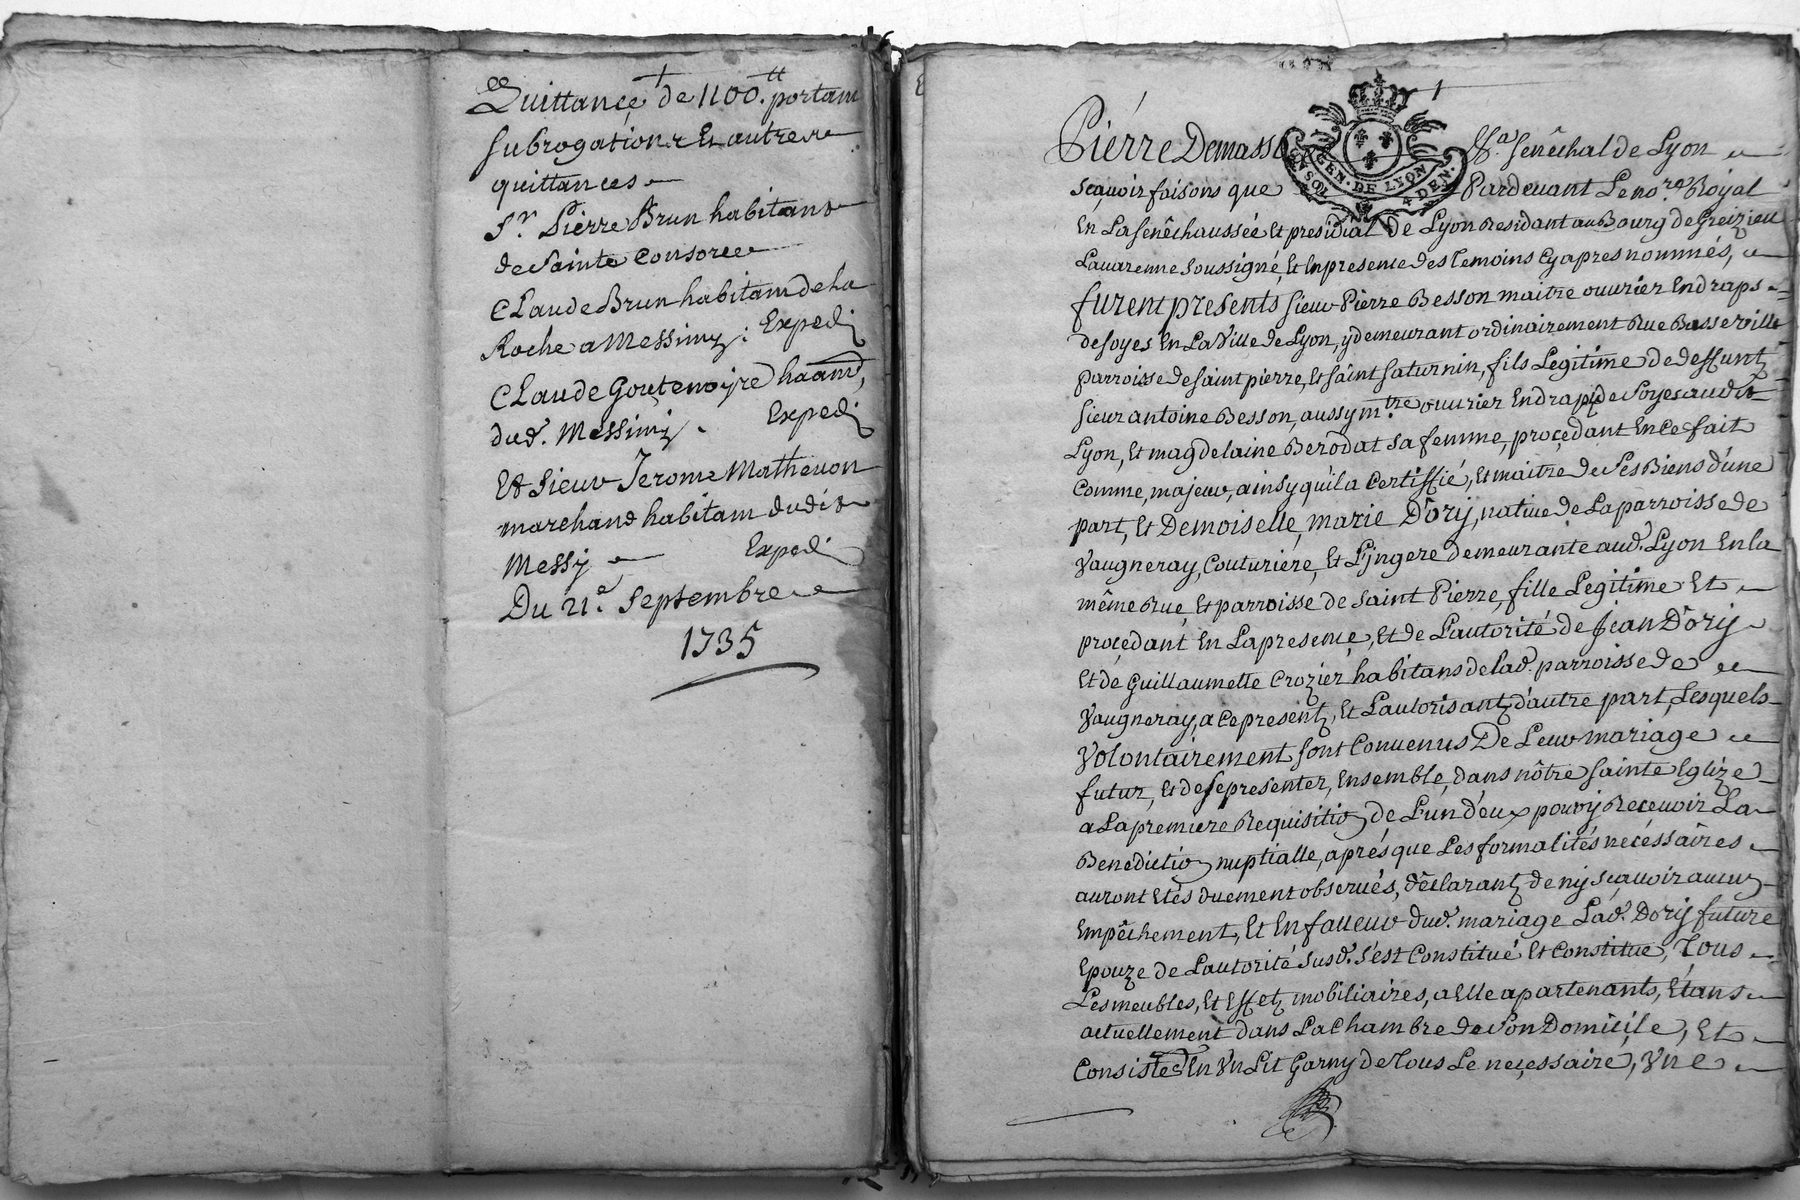 Quittance de 1100.tt portant
subrogation & Et autres
quittances
Sr. Pierre Brun habitant
de Sainte Consorce
Claude Brun habitant de la
Roche a Messimy. Expedi
Claude Goutenoire haant,
dud. Messimi. Expedi
Et Sieur Jerome Mathevon
marchand habitant dudit
Messy Expedi
Du 21e. Septembre
1735
Pierre Demasso
GEN. DE LYON
4 DEN.
1
Sa. senêchal de Lyon
Sçavoir faisons que Pardevant Le nore. Royal
En La senêchaussée et presidial de Lyon Residant au Bourg de Greizieu
Lavarenne soussigné, Et En presence des temoins Cy apres nommés,
furent presents sieur Pierre Besson maitre ouvrier En draps
de soyes En La Ville de Lyon, y demeurant ordinairement Rue Basseville
parroisse de saint pierre, Et saint saturnin, fils Legitime de deffunt
sieur antoine Besson, aussy mtre. ouvrier En drap de Soyes audit
Lyon, Et magdelaine Berodat sa femme, proçedant En ce fait
Comme, majeur, ainsy qu'il a Certiffié, Et maitre de Ses Biens d'une
part, Et Demoiselle, marie Dory, native de La parroisse de
Vaugneray, Couturiere, Et Lyngere demeurante aud. Lyon En la
même Rue, Et parroisse de saint Pierre, fille Legitime Et
proçedant En La presence, Et de L'autorité de Jean Dory
Et de Guillaumette Crozier habitans de lad. parroisse de
Vaugneray, a Ce presentz, Et L'autorisantz d'autre part, Lesquels
Volontairement sont Convenus De Leur mariage
futur, Et de se presenter, Ensemble, dans nôtre sainte Eglize
a La premiere Requisition de L'un d'eux pour y Recevoir La
Benediction nuptialle, aprés que Les formalités necéssaires
auront Etés duement observés, déclarantz de ny sçavoir aucun
Empêchement, Et En faveur dud. mariage Lad. Dory future
Epouze de L'autorité susd. s'est Constitué Et Constitue, Tous
Les meubles, Et Effetz mobiliaires, a Elle apartenants, Etans
actuellement dans La Chambre de Son Domicile, Et
Consistes En Un Lit Garny de Tous Le neçessaire, Une